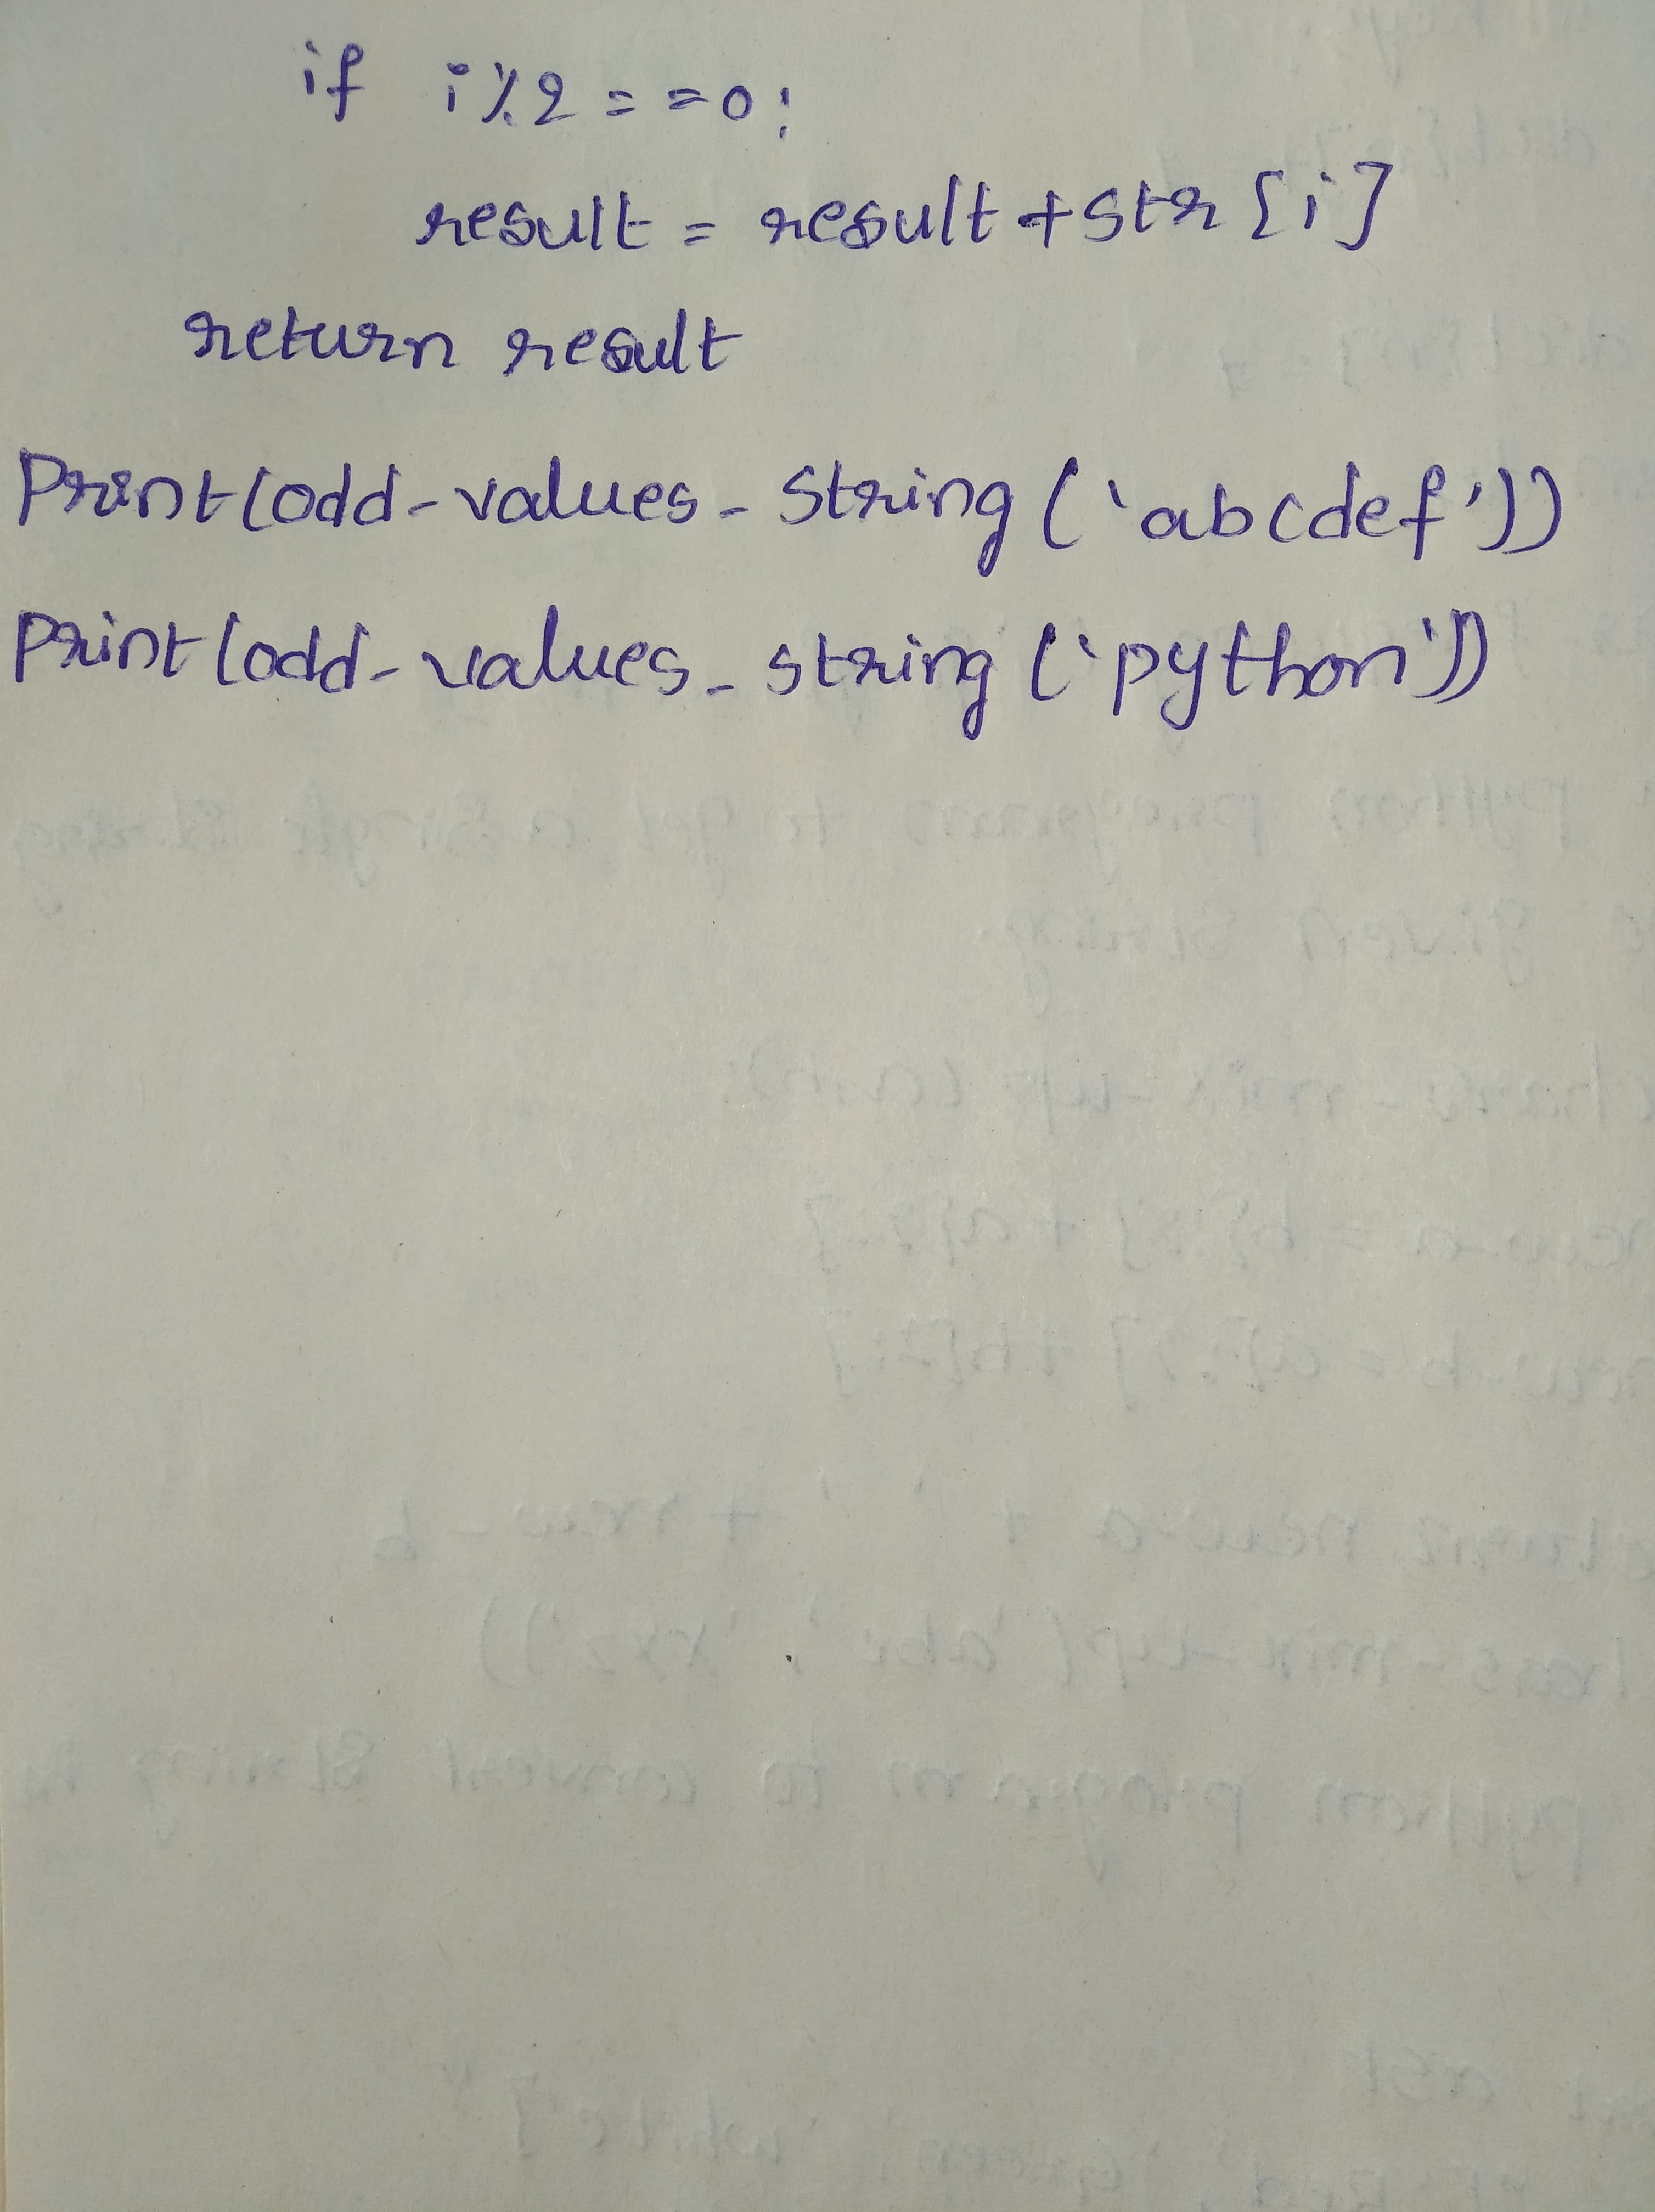 if i%2==0:
result = result+str[i]
return result
Print(odd-values-string('abcdef'))
Print(odd-values-string('python'))